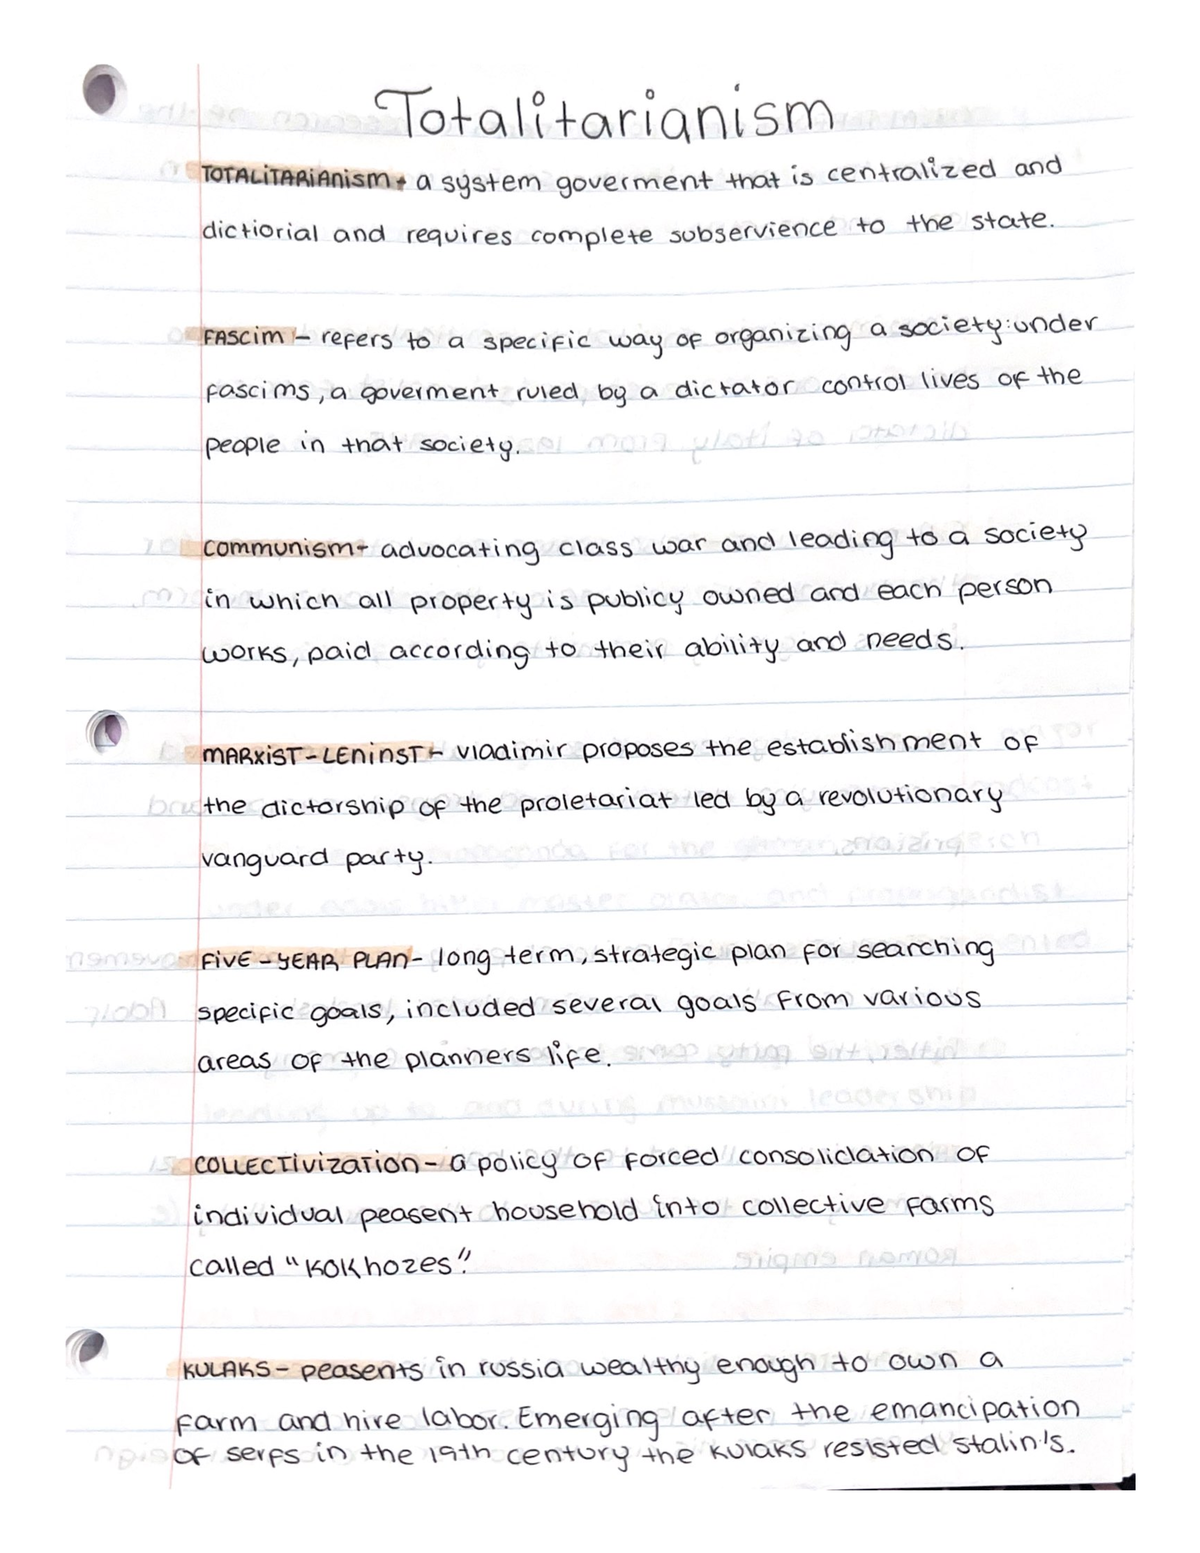 Totalitarianism
TOTALiTARiAnism - a system goverment that is centralized and
dictiorial and requires complete subservience to the state.
FAScim - refers to a specific way of organizing a society:under
fascims, a goverment ruled by a dictator control lives of the
people in that society.
communism- advocating class war and leading to a society
in which all property is publicy owned and each person
works, paid according to their ability and needs.
MARxiST-LEninST - vladimir proposes the establishment of
the dictorship of the proletariat led by a revolutionary
vanguard party.
FiVE-YEAR PLAN- long term, strategic plan for searching
specific goals, included several goals from various
areas of the planners life.
COLLECTivization- a policy of forced consolidation of
individual peasent household into collective farms
called "KOKhozes"
KULAKS- peasents in russia wealthy enough to own a
farm and hire labor. Emerging after the emancipation
of serfs in the 19th century the kulaks resisted Stalin's.